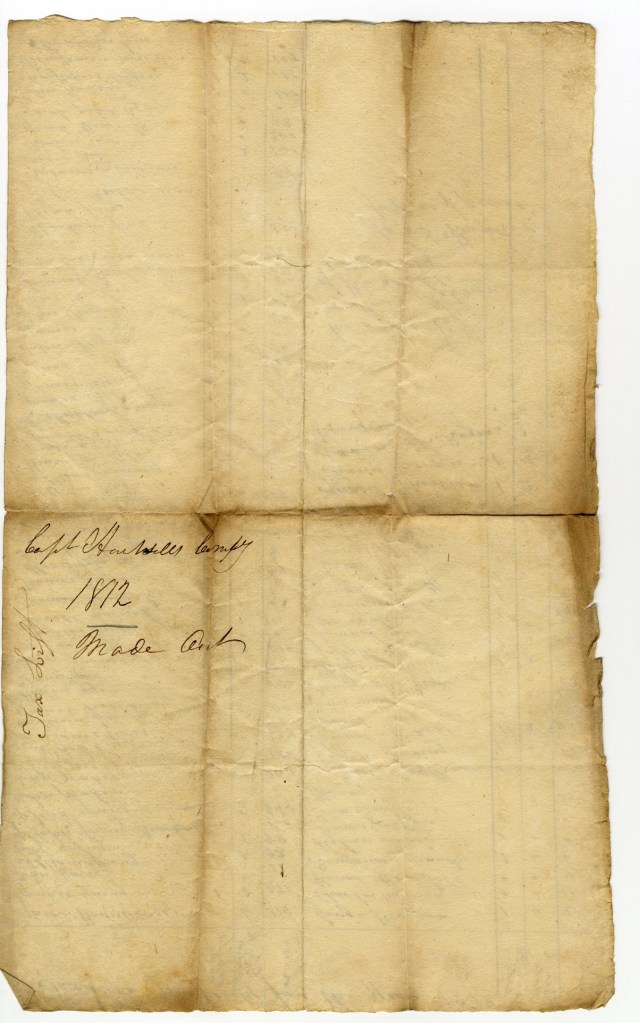 Capt Harwells Compy
1812
Made Out
Tax List